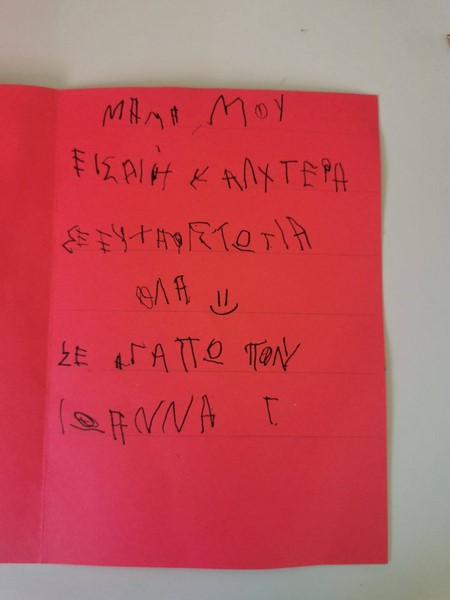 ΜΑΜΑ ΜΟΥ
ΕΙΣΑΙ Η ΚΑΛΥΤΕΡΑ
ΣΕ ΕΥΧΑΡΣΤΩ ΓΙΑ
ΟΛΑ
ΣΕ ΑΓΑΠΩ ΠΟΛΥ
ΙΩΑΝΝΑ Γ.